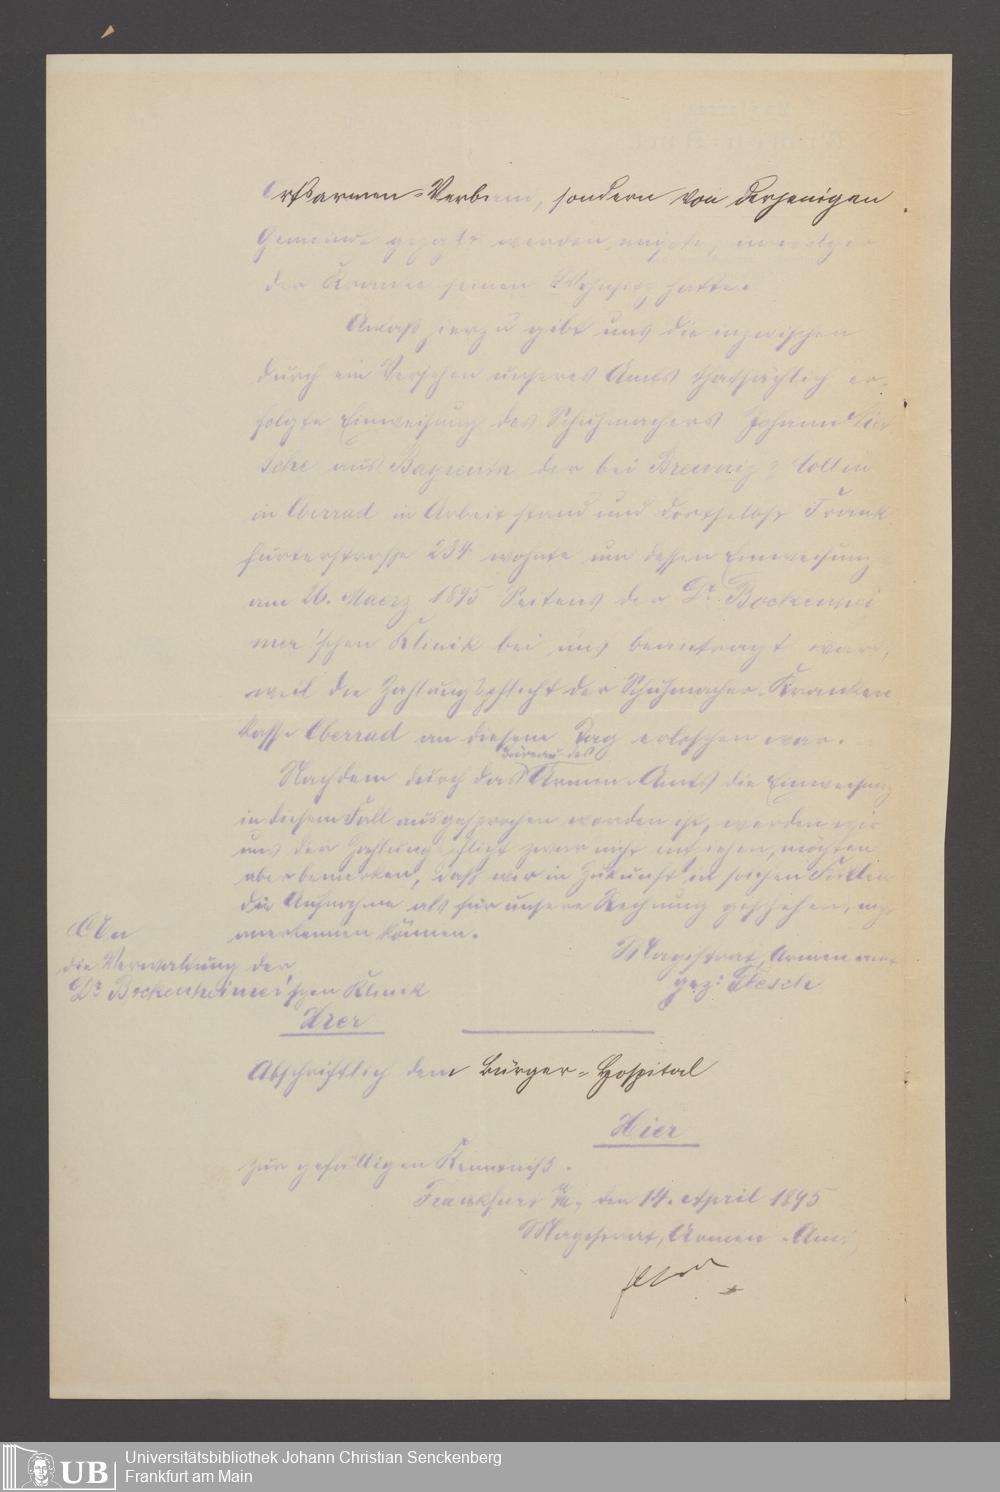 Ortsarmen-Verband, sondern von derjenigen
Gemeinde gezahlt werden müsste, in welcher
der Kranke seinen Wohnsitz hatte.
Anlass hierzu gibt uns die inzwischen
durch ein Versehen unseres Amts thatsächlich er-
folgte Einweisung des Schuhmachers Johann
aus Bayreuth der bei
in Oberrad in Arbeit stand und dortselbst Frank-
furterstrasse 234 wohnte um dessen Einweisung
am 26. Maerz 1895 Seitens der Dr. Bockenhei
mer'schen Klinik bei uns beantragt war,
weil die Zahlungspflicht der Schuhmacher-Kranken
kasse Oberrad an diesem Tag erloschen war.
Nachdem durch das Bureau des Armen-Amts die Einweisung
in diesem Fall ausgesprochen worden ist, werden wir
uns der Zahlungspflicht zwar nicht entziehen, möchten
aber bemerken, dass wir in Zukunft in solchen Fällen
die Aufnahme als für unsere Rechnung geschehen, nicht
anerkennen können.
Magistrat, Armen amt
gez: Flesch
An
die Verwaltung der
Dr. Bockenheimer'schen Klinik
Hier
Abschriftlich dem Bürger-Hospital
Hier
zur gefälligen Kenntniß.
Frankfurt a/M, den 14. April 1895
Magistrat, Armen-Amt
Universitätsbibliothek Johann Christian Senckenberg
Frankfurt am Main
UB